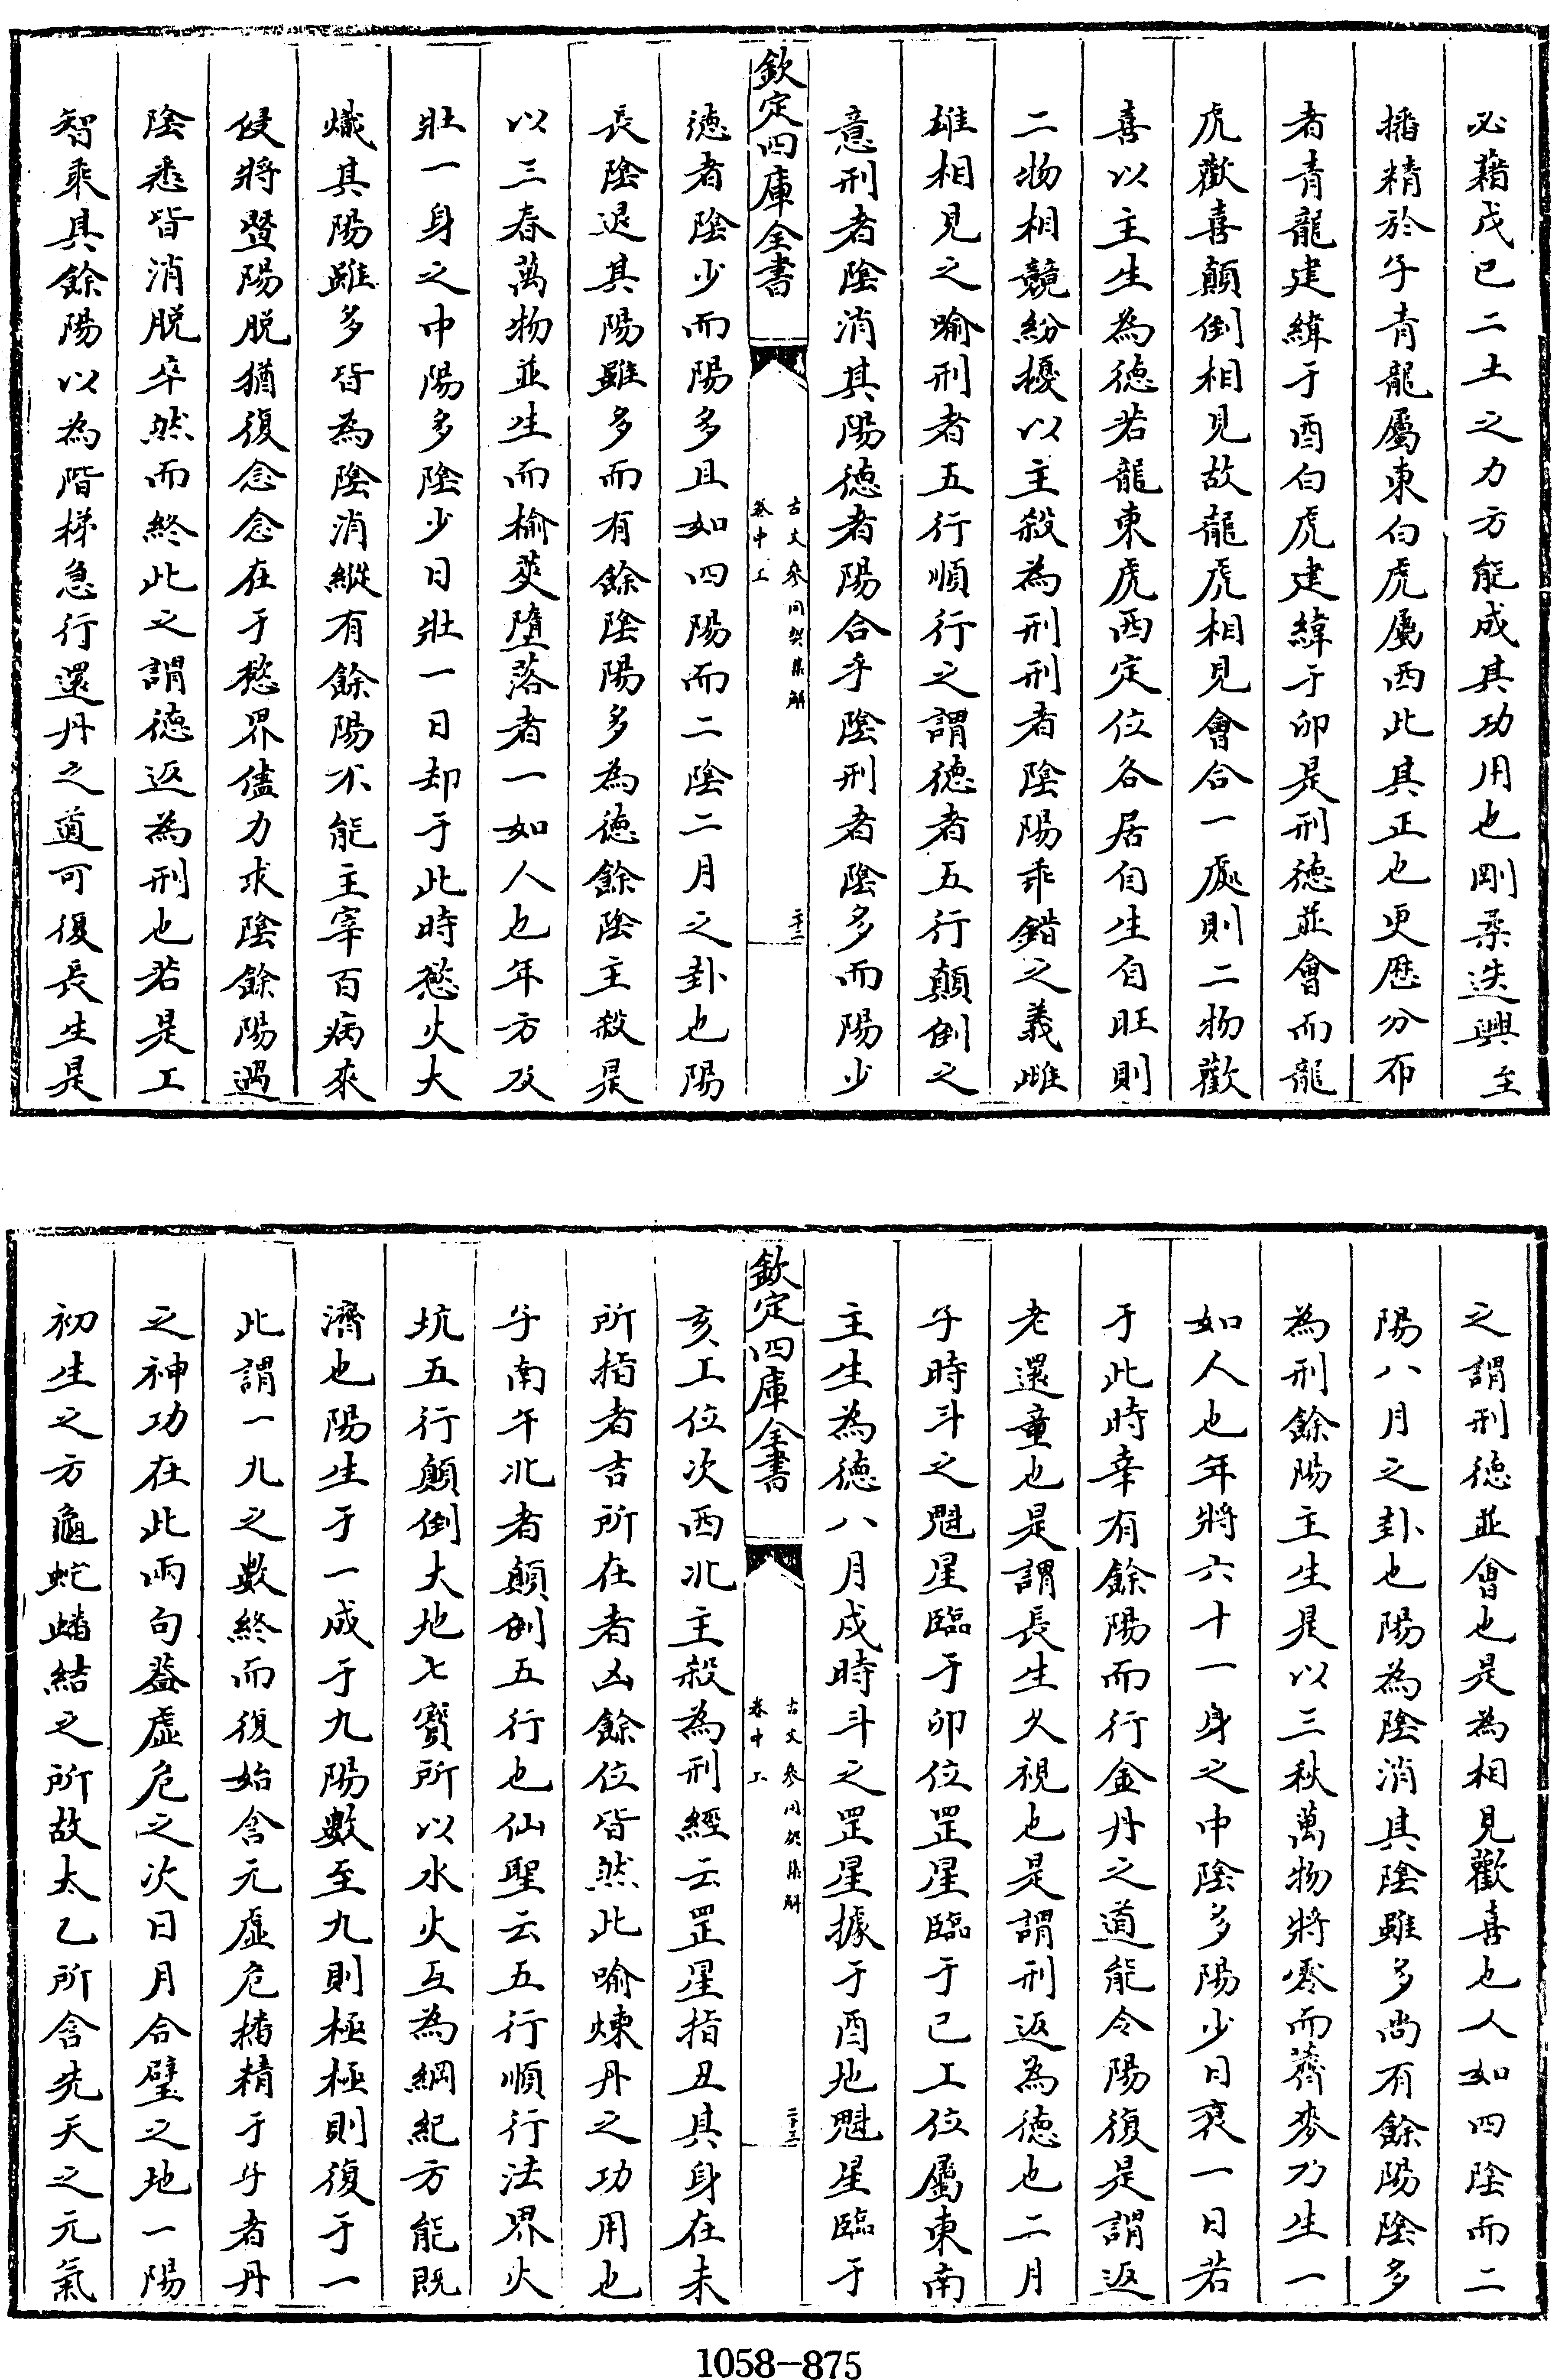 必藉戊已二土之力方能成其功用也剛柔迭興至
播精於子青龍屬東白虎屬西此其正也更歴分布
者青龍建緯于酉白虎建緯于卯是刑徳並會而龍
虎歡喜顛倒相見故龍虎相見會合一處則二物歡
喜以主生為徳若龍東虎西定位各居自生自旺則
二物相競紛擾以主殺為刑刑者隂陽乖錯之義雌
雄相見之喻刑者五行順行之謂徳者五行顛倒之
意刑者隂消其陽徳者陽合乎隂刑者隂多而陽少
欽定四庫全書
古文參同契集解
卷中上
二十二
徳者隂少而陽多且如四陽而二隂二月之卦也陽
長隂退其陽雖多而有餘隂陽多為徳餘隂主殺是
以三春萬物並生而榆莢墮落者一如人也年方及
壯一身之中陽多隂少日壯一日却于此時慾火大
熾其陽雖多皆為隂消縱有餘陽不能主宰百病來
侵將暨陽脱猶復念念在于慾界儘力求隂餘陽遇
隂悉皆消脱卒然而終此之謂徳返為刑也若是工
智乘其餘陽以為階梯急行還丹之道可復長生是
之謂刑徳並會也是為相見歡喜也人如四隂而二
陽八月之卦也陽為隂消其隂雖多尚有餘陽隂多
為刑餘陽主生是以三秋萬物將零而薺麥乃生一
如人也年將六十一身之中隂多陽少日衰一日若
于此時幸有餘陽而行金丹之道能令陽復是謂返
老還童也是謂長生乆視也是謂刑返為徳也二月
子時斗之魁星臨于卯位罡星臨于已工位屬東南
主生為徳八月戌時斗之罡星據于酉地魁星臨于
欽定四庫全書
古文參同契集解
卷中上
二十三
亥工位次西北主殺為刑經云罡星指丑其身在未
所指者吉所在者凶餘位皆然此喻煉丹之功用也
子南午北者顛倒五行也仙聖云五行順行法界火
坑五行顛倒大地七寳所以水火互為綱紀方能既
濟也陽生于一成于九陽數至九則極極則復于一
此謂一九之數終而復始含元虛危播精于子者丹
之神功在此兩句葢虛危之次日月合璧之地一陽
初生之方龜蛇蟠結之所故太乙所含先天之元氣
1058-875